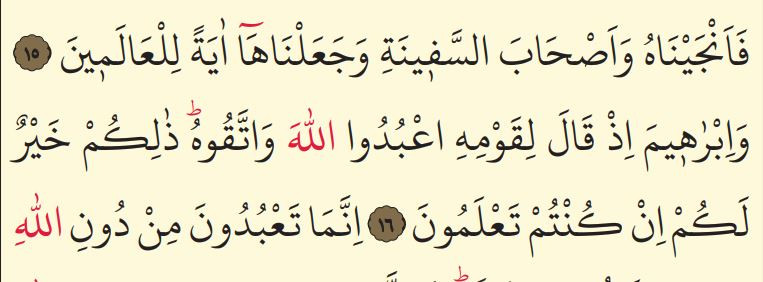 فَاَنْجَيْنَاهُ وَاَصْحَابَ السَّفٖينَةِ وَجَعَلْنَاهَٓا اٰيَةً لِلْعَالَمٖينَ ﴿١٥﴾
وَاِبْرٰهٖيمَ اِذْ قَالَ لِقَوْمِهِ اعْبُدُوا اللّٰهَ وَاتَّقُوهُؕ ذٰلِكُمْ خَيْرٌ
لَكُمْ اِنْ كُنْتُمْ تَعْلَمُونَ ﴿١٦﴾ اِنَّمَا تَعْبُدُونَ مِنْ دُونِ اللّٰهِ